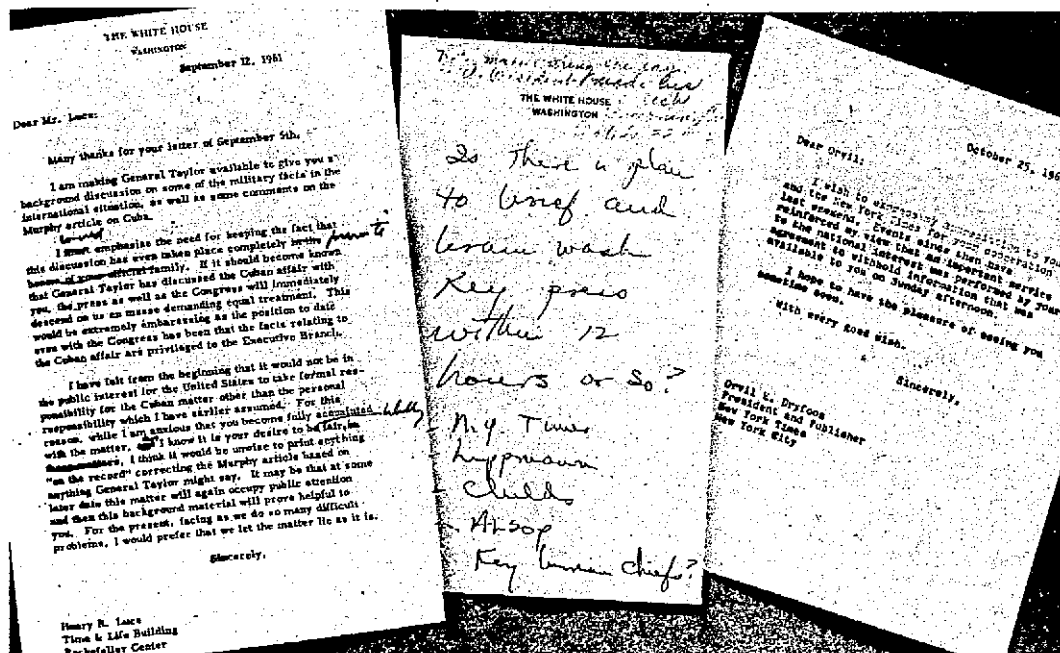 THE WHITE HOUSE
WASHINGTON
September 12, 1961
Dear Mr. Luce:
Many thanks for your letter of September 5th.
I am making General Taylor available to give you a
background discussion on some of the military facts in the
international situation, as well as some comments on the
Murphy article on Cuba.
I must emphasize the need for keeping the fact that
this discussion has even taken place completely in the private
bosom of your official family. If it should become known
that General Taylor has discussed the Cuban affair with
you, the press as well as the Congress will immediately
descend on us en masse demanding equal treatment. This
would be extremely embarassing as the position to date
even with the Congress has been that the facts relating to
the Cuban affair are privileged to the Executive Branch.
I have felt from the beginning that it would not be in
the public interest for the United States to take formal res-
ponsibility for the Cuban matter other than the personal
responsibility which I have earlier assumed. For this
reason, while I am anxious that you become fully acquainted
with the matter, I know it is your desire to be fair, in
I think it would be unwise to print anything
"on the record" correcting the Murphy article based on
anything General Taylor might say. It may be that at some
later date this matter will again occupy public attention
and then this background material will prove helpful to
you. For the present, facing as we do so many difficult
problems, I would prefer that we let the matter lie as it is.
Sincerely,
Henry R. Luce
Time & Life Building
Rockefeller Center
THE WHITE HOUSE
WASHINGTON
Is there a plan
to brief and
brain wash
Key press
within 12
hours or so?
- N.Y. Times
- Lippmann
- Childs
- Alsop
Key bureau chiefs?
October 25, 196
Dear Orvil:
I wish to express my appreciation to you
and the New York Times for your cooperation
last weekend. Events since then have
reinforced my view that an important service
to the national interest was performed by your
agreement to withhold information that was
available to you on Sunday afternoon.
I hope to have the pleasure of seeing you
sometime soon.
With every good wish,
Sincerely,
Orvil E. Dryfoos
President and Publisher
New York Times
New York City